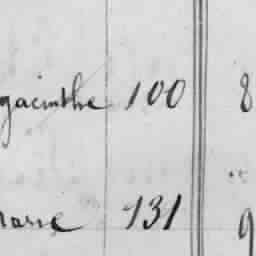 yacinthe 100 8
marie 131 9